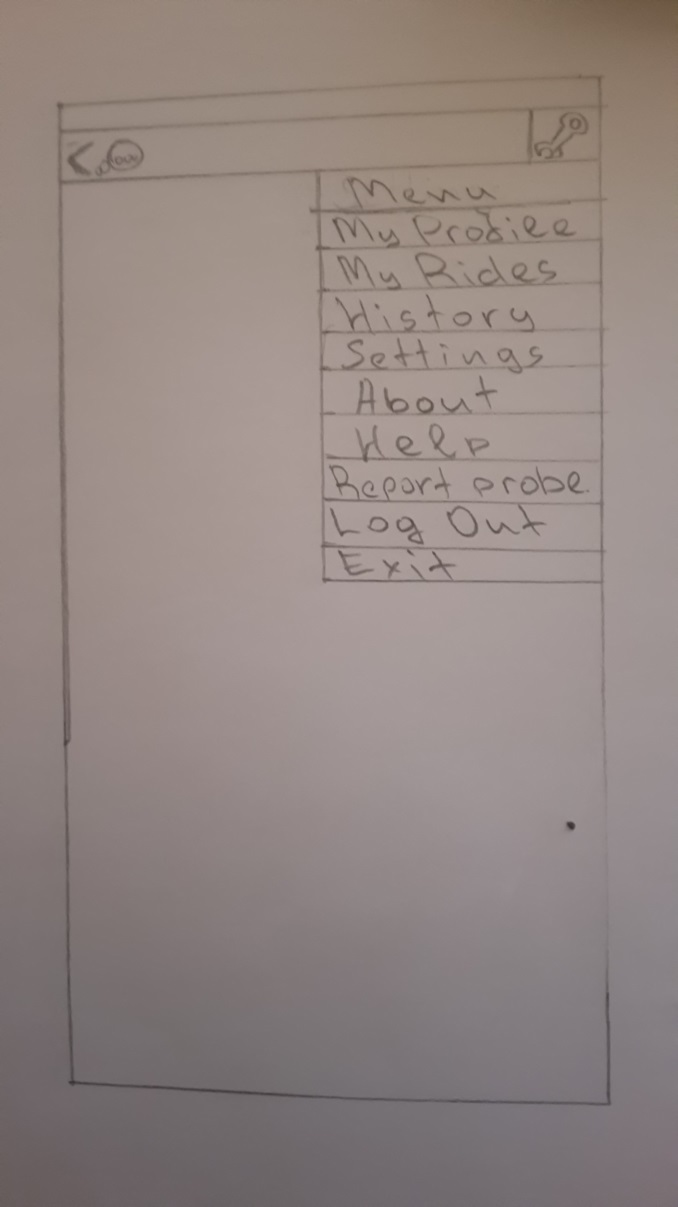 Menu
My Profile
My Rides
History
Settings
About
Help
Report probe.
Log Out
Exit